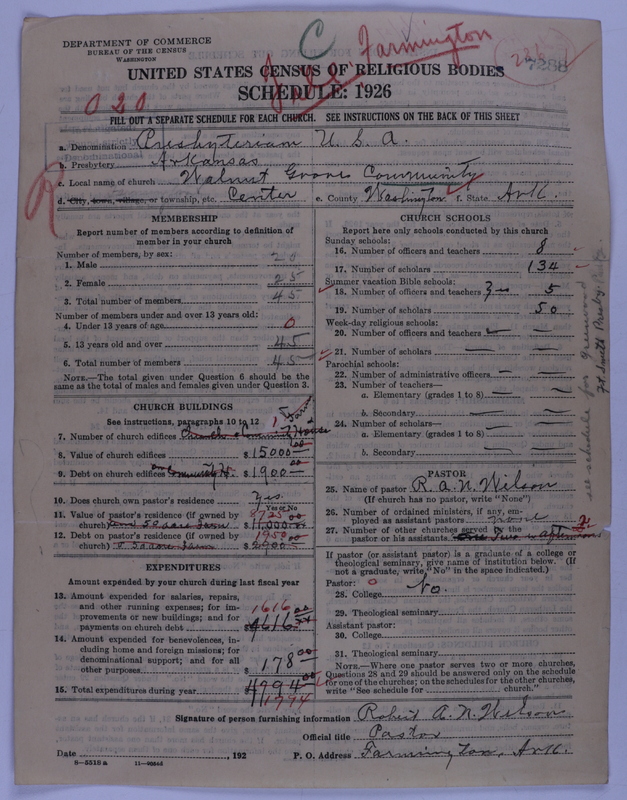 DEPARTMENT OF COMMERCE
BUREAU OF THE CENSUS
WASHINGTON
C Farmington
7288
UNITED STATES CENSUS OF RELIGIOUS BODIES
SCHEDULE: 1926
020
FILL OUT A SEPARATE SCHEDULE FOR EACH CHURCH. SEE INSTRUCTIONS ON THE BACK OF THIS SHEET
a. Denomination Presbyterian U. S. A.
b. Presbytery Arkansas
c. Local name of church Walnut Grove Community
d. City, town, village, or township, etc. Center e. County Washington f. State Ark.
MEMBERSHIP
Report number of members according to definition of member in your church
Number of members, by sex:
1. Male 20
2. Female 25
3. Total number of members 45
Number of members under and over 13 years old:
4. Under 13 years of age 0
5. 13 years old and over 45
6. Total number of members 45
NOTE.—The total given under Question 6 should be the same as the total of males and females given under Question 3.
CHURCH BUILDINGS
See instructions, paragraphs 10 to 12
7. Number of church edifices 1
8. Value of church edifices $15000.00
9. Debt on church edifices $1900.00
10. Does church own pastor's residence Yes.
Yes or No
11. Value of pastor's residence (if owned by church) $11,000.00
12. Debt on pastor's residence (if owned by church) 1950.00
EXPENDITURES
Amount expended by your church during last fiscal year
13. Amount expended for salaries, repairs, and other running expenses; for improvements or new buildings; and for payments on church debt 1616.00
14. Amount expended for benevolences, including home and foreign missions; for denominational support; and for all other purposes $178.00
15. Total expenditures during year 1794
CHURCH SCHOOLS
Report here only schools conducted by this church
Sunday schools:
16. Number of officers and teachers 8
17. Number of scholars 134
Summer vacation Bible schools:
18. Number of officers and teachers Yes 5
19. Number of scholars 50
Week-day religious schools:
20. Number of officers and teachers —
21. Number of scholars —
Parochial schools:
22. Number of administrative officers —
23. Number of teachers—
a. Elementary (grades 1 to 8) —
b. Secondary —
24. Number of scholars—
a. Elementary (grades 1 to 8) —
b. Secondary —
see schedule for Greenwood
Ft. Smith Presby. Ark.
PASTOR
25. Name of pastor R. A. N. Wilson
(If church has no pastor, write "None")
26. Number of ordained ministers, if any, employed as assistant pastors none
27. Number of other churches served by the pastor or his assistants 2
If pastor (or assistant pastor) is a graduate of a college or theological seminary, give name of institution below. (If not a graduate, write "No" in the space indicated.)
Pastor:
28. College No.
29. Theological seminary
Assistant pastor:
30. College
31. Theological seminary
NOTE.—Where one pastor serves two or more churches, Questions 28 and 29 should be answered only on the schedule for one of the churches; on the schedules for the other churches, write "See schedule for church."
Signature of person furnishing information Robert A. N. Wilson
Official title Pastor
Date , 192 P. O. Address Farmington, Ark.
8—5518 a